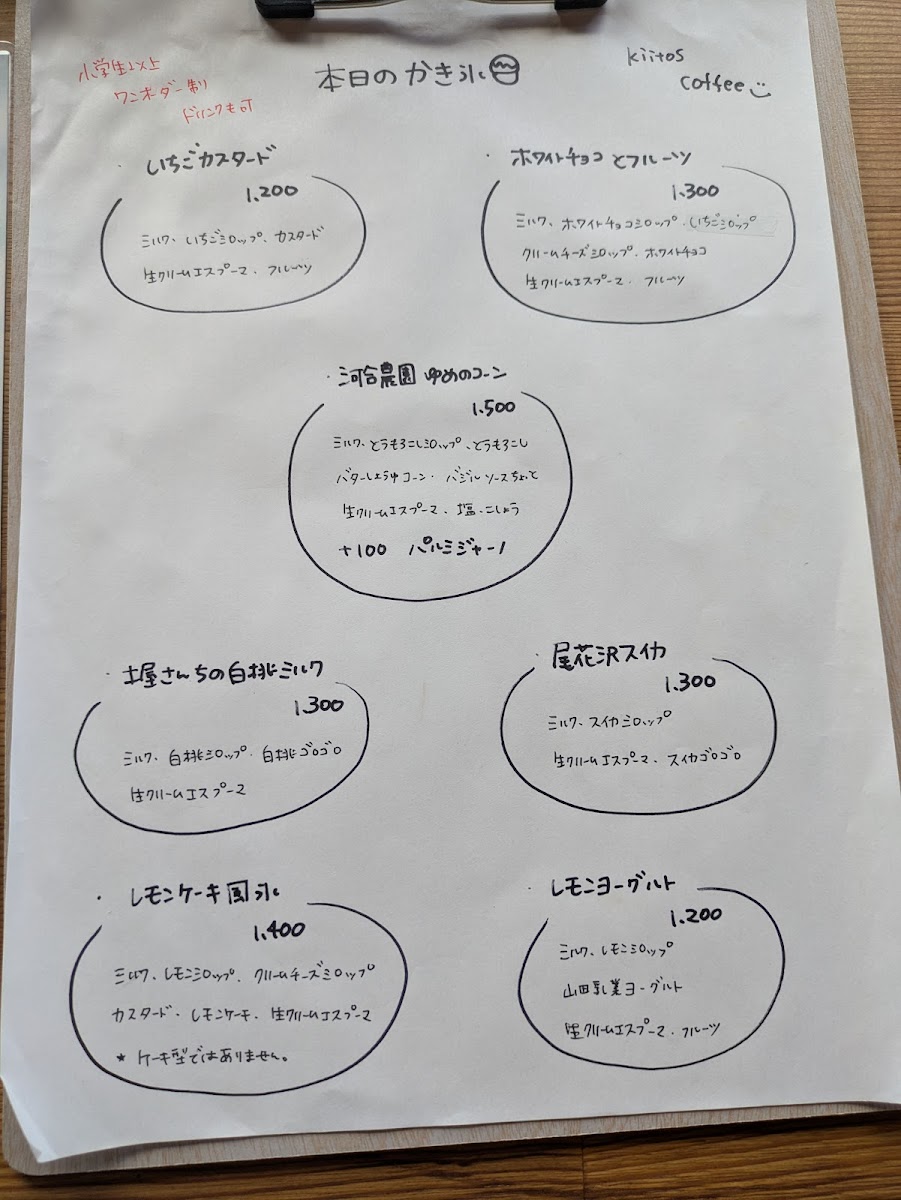 小学生以上
ワンオーダー制
ドリンクも可
本日のかき氷
kiitos
coffee
・いちごカスタード
1.200
ミルク、いちごシロップ、カスタード
生クリームエスプーマ、フルーツ
・ホワイトチョコとフルーツ
1.300
ミルク、ホワイトチョコシロップ、(いちごシロップ
クリームチーズシロップ、ホワイトチョコ
生クリームエスプーマ、フルーツ
・河合農園 ゆめのコーン
1.500
ミルク、とうもろこしシロップ、とうもろこし
バターしょうゆコーン、バジルソースちょっと
生クリームエスプーマ、塩、こしょう
+100 パルミジャーノ
・土屋さんちの白桃ミルク
1.300
ミルク、白桃シロップ、白桃ゴロゴロ
生クリームエスプーマ
・尾花沢スイカ
1.300
ミルク、スイカシロップ
生クリームエスプーマ、スイカゴロゴロ
・レモンケーキ風氷
1.400
ミルク、レモンシロップ、クリームチーズシロップ
カスタード、レモンケーキ、生クリームエスプーマ
★ ケーキ型ではありません。
・レモンヨーグルト
1.200
ミルク、レモンシロップ
山田乳業ヨーグルト
生クリームエスプーマ、フルーツ